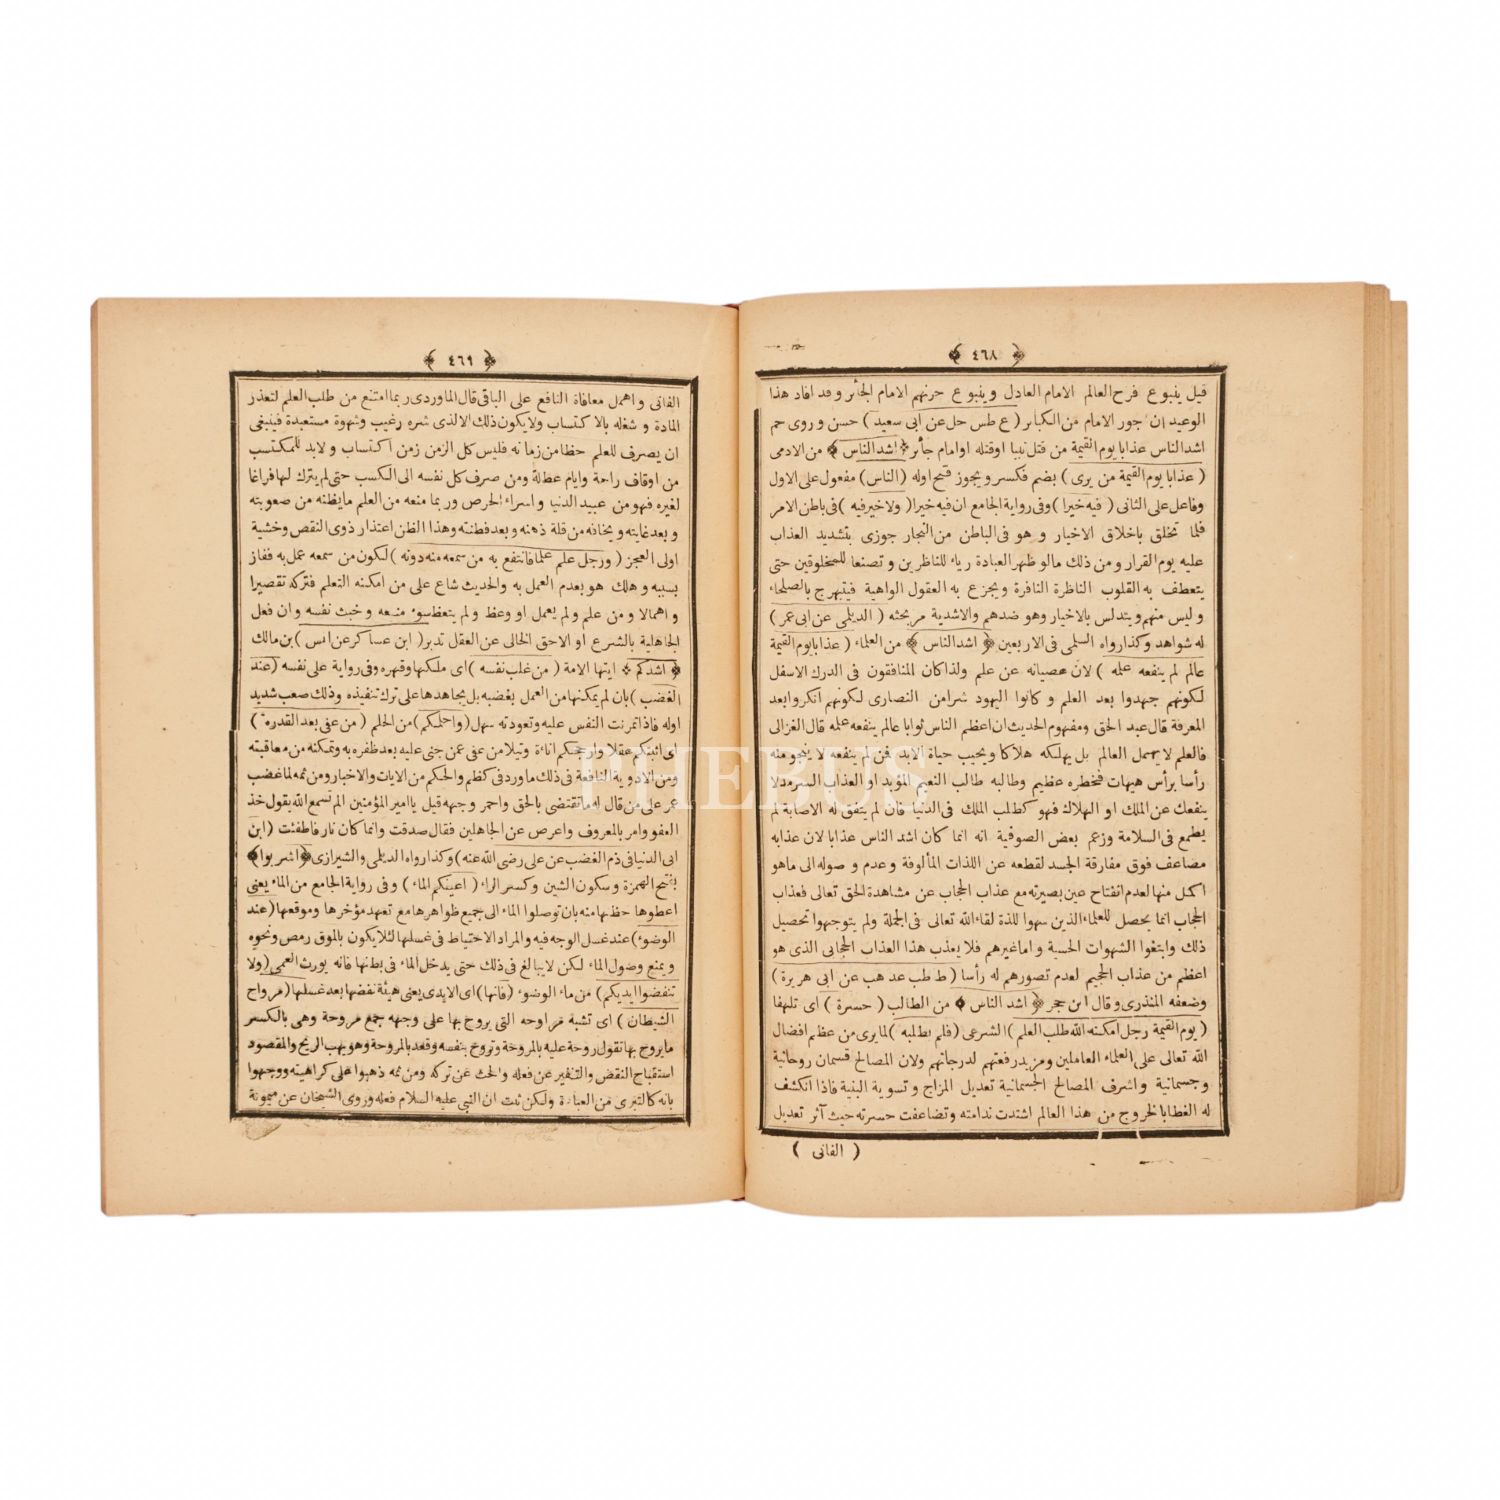 ﴿ ٤٦٨ ﴾
قيل ينبوع فرح العالم الامام العادل وينبوع حزنهم الامام الجائر وقد افاد هذا
الوعيد ان جور الامام من الكبائر ( ع طس حل عن ابى سعيد ) حسن و روى حم
اشد الناس عذابا يوم القيمة من قتل نبيا او قتله او امام جائر ﴿ اشد الناس ﴾ من الادمى
( عذابا يوم القيمة من يرى ) بضم فكسر ويجوز فتح اوله ( الناس ) مفعول على الاول
وفاعل على الثانى ( فيه خيرا ) وفى رواية الجامع ان فيه خيرا ( ولا خير فيه ) فى باطن الامر
فلما تخلق باخلاق الاخيار و هو فى الباطن من الفجار جوزى بتشديد العذاب
عليه يوم القرار و من ذلك ما لو ظهر العبادة رياء للناظرين و تصنعا للمخلوقين حتى
يتعطف به القلوب الناظرة النافرة ويجزع به العقول الواهية فيتبهرج بالصلحاء
و ليس منهم ويتدلس بالاخيار وهو ضدهم والاشدية مر بحثه ( الديلمى عن ابى عمر )
له شواهد وكذا رواه السلمى فى الاربعين ﴿ اشد الناس ﴾ من العلماء ( عذابا يوم القيمة
عالم لم ينفعه علمه ) لان عصيانه عن علم ولذا كان المنافقون فى الدرك الاسفل
لكونهم جهدوا بعد العلم و كانوا اليهود شرا من النصارى لكونهم انكروا بعد
المعرفة قال عبد الحق ومفهوم الحديث ان اعظم الناس ثوابا عالم ينفعه علمه قال الغزالى
فالعلم لا يهمل العالم بل يهلكه هلاكا و يحييب حياة الابد فمن لم ينفعه لا ينجو منه
رأسا برأس هيهات فخطره عظيم وطالبه طالب النعيم المؤبد او العذاب السرمد لا
ينفعك عن الملك او الهلاك فهو كطلب الملك فى الدنيا فان لم يتفق له الاصابة لم
يطمع فى السلامة وزعم بعض الصوفية انه انما كان اشد الناس عذابا لان عذابه
مضاعف فوق مفارقة الجسد لقطعه عن اللذات المألوفة وعدم وصوله الى ما هو
اكمل منها لعدم انفتاح عين بصيرته مع عذاب الحجاب عن مشاهدة الحق تعالى فعذاب
الحجاب انما يحصل للعلماء الذين سهوا للذة لقاء الله تعالى فى الجملة ولم يتوجهوا تحصيل
ذلك وابتغوا الشهوات الحسية و اما غيرهم فلا يعذب هذا العذاب الحجابى الذى هو
اعظم من عذاب الجحيم لعدم تصورهم له رأسا ( ط طب عد هب عن ابى هريرة )
وضعفه المنذرى وقال ابن حجر ﴿ اشد الناس ﴾ من الطالب ( حسرة ) اى تلهفا
( يوم القيمة رجل امكنه الله طلب العلم ) الشرعى ( فلم يطلبه ) لما يرى من عظم افضال
الله تعالى على العلماء العاملين ومزيد رفعتهم لدرجاتهم ولان المصالح قسمان روحانية
وجسمانية واشرف المصالح الجسمانية تعديل المزاج و تسوية البنية فاذا انكشف
له الغطا بالخروج من هذا العالم اشتدت ندامته وتضاعفت حسرته حيث آثر تعديل
( الفانى )
﴿ ٤٦٩ ﴾
الفانى و اهمل معافاة النافع على الباقى قال الماوردى ربما امتنع من طلب العلم لتعذر
المادة و شغله بالاكتساب ولا يكون ذلك الا لذى شره رغيب وشهوة مستعبدة فينبغى
ان يصرف للعلم حظا من زمانه فليس كل الزمن زمن اكتساب و لابد للمكتسب
من اوقاف راحة وايام عطلة ومن صرف كل نفسه الى الكسب حتى لم يترك لها فراغا
لغيره فهو من عبيد الدنيا و اسراء الحرص وربما منعه من العلم ما يظنه من صعوبته
و بعد غايته و يخافه من قلة ذهنه و بعد فطنته وهذا الظن اعتذار ذوى النقص وخشية
اولى العجز ( ورجل علم علما فانتفع به من سمعه منه دونه ) لكون من سمعه عمل به ففاز
بسببه و هلك هو بعدم العمل به والحديث شاع على من امكنه التعلم فتركه تقصيرا
و اهمالا و من علم ولم يعمل او وعظ ولم يتعظ سوء صنيعه وخبث نفسه وان فعل
الجاهلية بالشرع او الاحق الخالى عن العقل تدبر ( ابن عساكر عن انس ) بن مالك
﴿ اشدكم ﴾ ايتها الامة ( من غلب نفسه ) اى ملكها وقهره وفى رواية على نفسه ( عند
الغضب ) بان لم يمكنها من العمل بغضبه بل يجاهدها على ترك تنفيذه وذلك صعب شديد
اوله فاذا تمرنت النفس عليه وتعودته سهل ( واحلمكم ) من الحلم ( من عفى بعد القدرة )
اى اثبتكم عقلا وارجحكم اناءة وتيلا من عفى عمن جنى عليه بعد ظفره به وتمكنه من معاقبته
ومن الادوية النافعة فى ذلك ما ورد فى كظم والحكم من الايات والاخبار ومن ثمه لما غضب
عمر على من قال له ما تقتضى بالحق واحمر وجهه قيل يا امير المؤمنين الم تسمع الله يقول خذ
العفو وامر بالمعروف واعرض عن الجاهلين فقال صدقت وانما كان نار فاطفئت ( ابن
ابى الدنيا فى ذم الغضب عن على رضى الله عنه ) وكذا رواه الديلمى والشيرازى ﴿ اشربوا ﴾
بفتح الهمزة وسكون الشين وكسر الراء ( اعينكم الماء ) وفى رواية الجامع من الماء يعنى
اعطوها حظها منه بان توصلوا الماء الى جميع ظواهرها مع تعهد مؤخرها وموقعها ( عند
الوضوء ) عند غسل الوجه فيه والمراد الاحتياط فى غسلها لئلا يكون بالموق رمص ونحوه
و يمنع وصول الماء لكن لا يبالغ فى ذلك حتى يدخل الماء فى بطنها فانه يورث العمى ( ولا
تنفضوا ايديكم ) من ماء الوضوء ( فانها ) اى الايدى يعنى هيئة نفضها بعد غسلها ( مرواح
الشيطان ) اى تشبه مراوحه التى يروح بها على وجهه جمع مروحة وهى بالكسر
ما يروح بها تقول روحة عليه بالمروحة وتروح بنفسه وقعد بالمروحة وهو يهب الريح والمقصود
استقباح النفض والتنفير عن فعله والحث عن تركه ومن ثمه ذهبوا على كراهيته ووجهوا
بانه كالتبرى من العبادة ولكن ثبت ان النبى عليه السلام فعله وروى الشيخان عن ميمونة
PHEBUS